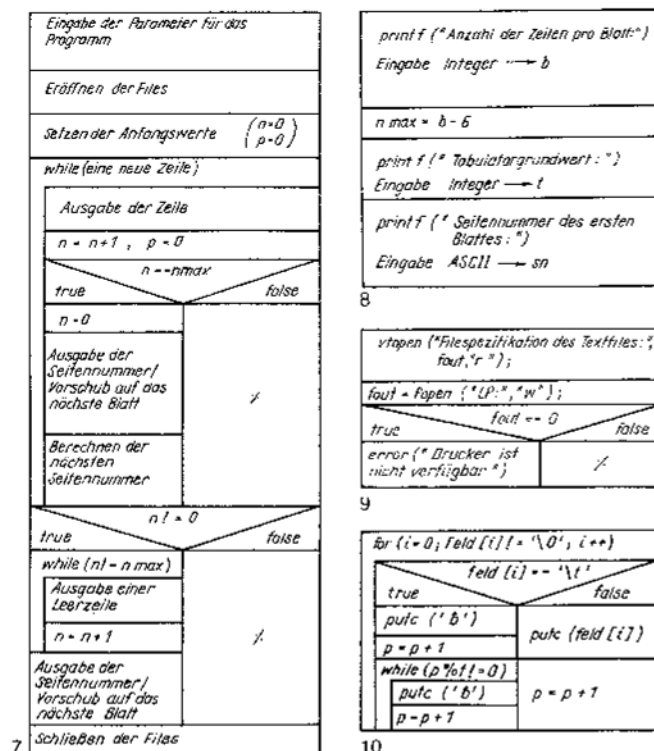 Eingabe der Parameter für das
Programm
Eröffnen der Files
Setzen der Anfangswerte (n=0
p=0)
while (eine neue Zeile)
Ausgabe der Zeile
n = n+1 , p = 0
n == nmax
true false
n = 0
Ausgabe der
Seitennummer/
Vorschub auf das
nächste Blatt
%
Berechnen der
nächsten
Seitennummer
n != 0
true false
while (n != n max)
Ausgabe einer
Leerzeile
n = n + 1
%
Ausgabe der
Seitennummer/
Vorschub auf das
nächste Blatt
Schließen der Files
7
printf ("Anzahl der Zeilen pro Blatt:")
Eingabe Integer → b
n max = b - 6
print f (" Tabulatorgrundwert : ")
Eingabe Integer → t
printf (" Seitennummer des ersten
Blattes : ")
Eingabe ASCII → sn
8
vtopen ("Filespezifikation des Textfiles:",
fout,"r ");
fout = fopen ("LP:","w");
fout == 0
true false
error (" Drucker ist
nicht verfügbar ")
%
9
for (i=0; Feld [i] != '\0'; i++)
feld [i] == '\t'
true false
putc ('b')
p = p + 1
putc (feld [i])
while (p % t != 0)
putc ('b')
p = p + 1
p = p + 1
10